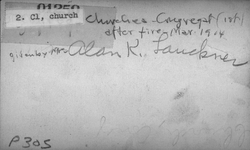 01250
2. Cl, church
Churches - Congregat (1st)
after fire, Mar. 1914
given by Mr. Alan K. Lauckner
P305